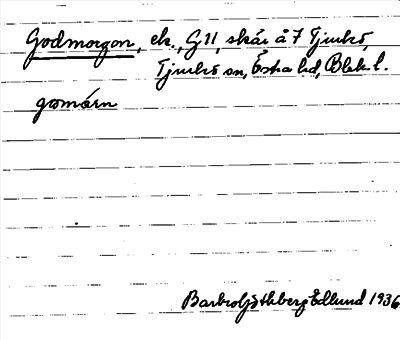 Godmorgon, ek., G 11, skär å 7 Tjurkö,
Tjurkö sn, Östra hd, Blek. l.
gomårn
Barbro Edlund 1936